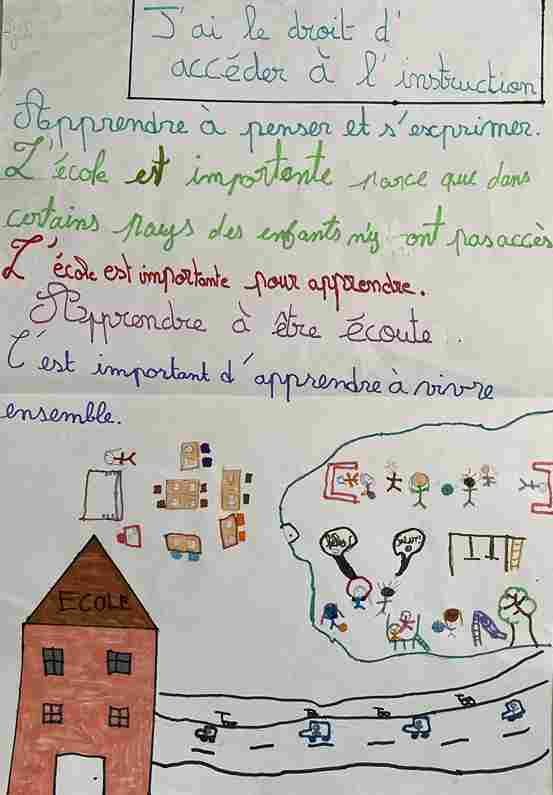 J'ai le droit d'
accéder à l'instruction
Apprendre à penser et s'exprimer.
L'école est importante parce que dans
certains pays des enfants n'y ont pas accès
L'école est importante pour apprendre.
Apprendre à être écoute.
C'est important d'apprendre à vivre
ensemble.
SALUT!
ECOLE